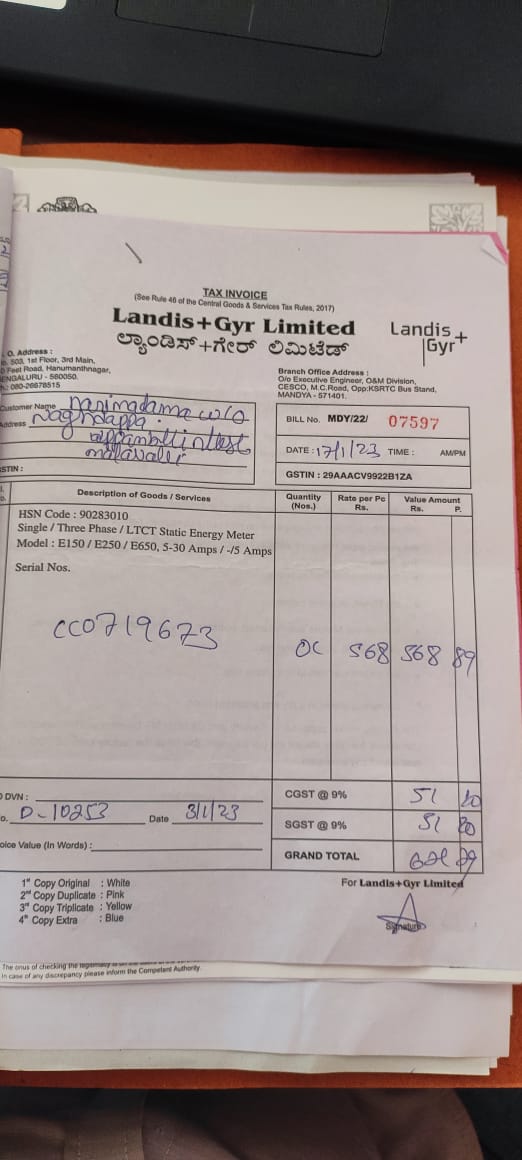 TAX INVOICE
(See Rule 46 of the Central Goods & Services Tax Rules, 2017)
Landis+Gyr Limited
ಲ್ಯಾಂಡಿಸ್+ಗೇರ್ ಲಿಮಿಟೆಡ್
Landis+
Gyr
. O. Address :
503, 1st Floor, 3rd Main,
Feet Road, Hanumanthnagar,
ENGALURU - 560050.
: 080-26678515
Branch Office Address :
O/o Executive Engineer, O&M Division,
CESCO, M.C.Road, Opp:KSRTC Bus Stand,
MANDYA - 571401.
Customer Name w/o
Address
malavalli
STIN :
BILL No. MDY/22/ 07597
DATE : 17/1/23 TIME : AM/PM
GSTIN : 29AAACV9922B1ZA
Description of Goods / Services
Quantity (Nos.)
Rate per Pc Rs.
Value Amount Rs. P.
HSN Code : 90283010
Single / Three Phase / LTCT Static Energy Meter
Model : E150 / E250 / E650, 5-30 Amps / -/5 Amps
Serial Nos.
CC0719673 568 568 89
DVN :
D-10253 Date 3/1/23
oice Value (In Words) :
CGST @ 9% 51 20
SGST @ 9% 51 20
GRAND TOTAL
1st Copy Original : White
2nd Copy Duplicate : Pink
3rd Copy Triplicate : Yellow
4th Copy Extra : Blue
For Landis+Gyr Limited
Signature
The onus of checking the
In case of any discrepancy please inform the Competent Authority.